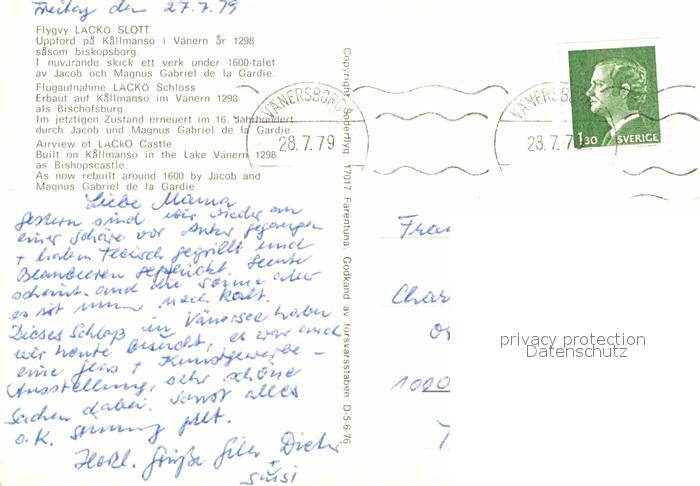 Freitag den 27.7.79
Flygvy LÄCKÖ SLOTT
Uppförd på Kållmansö i Vänern år 1298
såsom biskopsborg.
I nuvarande skick ett verk under 1600-talet
av Jacob och Magnus Gabriel de la Gardie.
Flugaufnahme LÄCKÖ Schloss
Erbaut auf Kållmansö im Vänern 1298
als Bischofsburg.
Im jetztigen Zustand erneuert im 16. Jahrhundert
durch Jacob und Magnus Gabriel de la Gardie
Airview of LÄCKÖ Castle
Built on Kållmansö in the Lake Vänern 1298
as Bishopscastle.
As now rebuilt around 1600 by Jacob and
Magnus Gabriel de la Gardie.
Liebe Mama
gestern sind wir wieder an
einer Schäre vor Anker gegangen
+ haben Fleisch gegrillt und
Blaubeeren gepflückt. Heute
scheint auch die Sonne aber
es ist immer noch kalt.
Dieses Schloß im Vänersee haben
wir heute besucht, es war auch
eine + Kunstgewerbe-
Ausstellung, sehr schöne
Sachen dabei. Sonst alles
o.K. Stimmung gut.
Herzl. Grüße Dieter
+
Susi
Copyright Söderflyg, 17017 Färentuna. Godkänd av försvarsstaben D-5-6-76
VÄNERSBORG
28.7.79
VÄNERSBORG
28.7.79
1.30 SVERIGE
Frau
Char
1000
privacy protection
Datenschutz